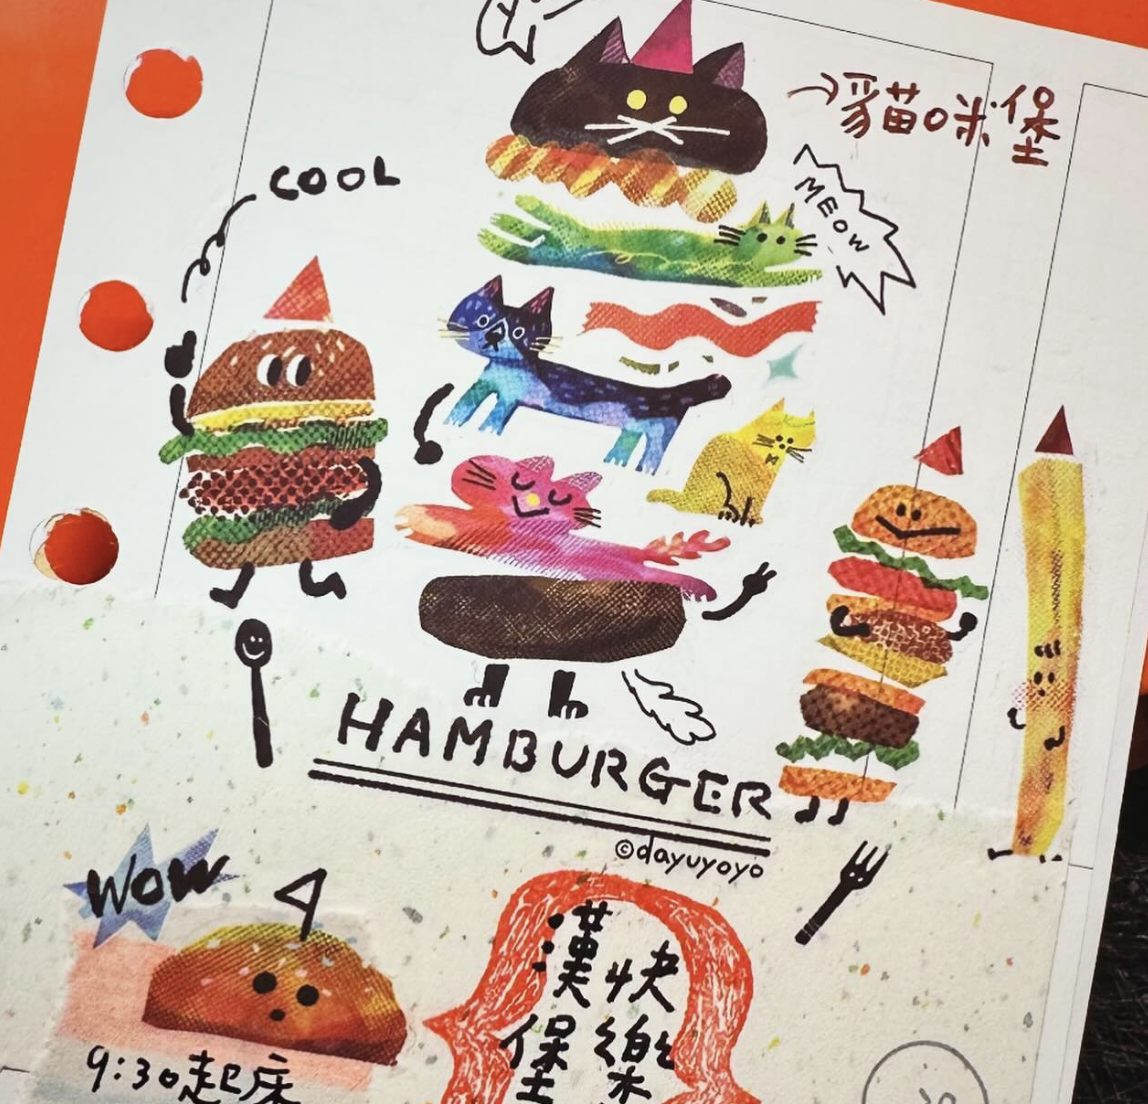 貓咪堡
COOL
MEOW
HAMBURGER
©dayuyoyo
WOW
快樂
漢堡
9:30起床